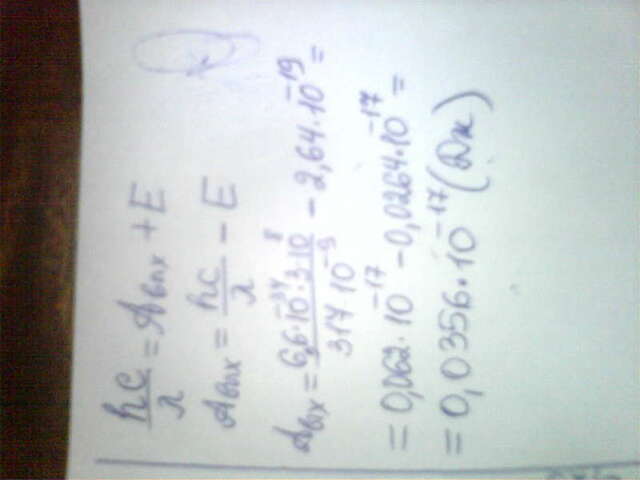 hc/λ = Aвых + E
Aвых = hc/λ - E
Aвх = 6,6·10⁻³⁴·3·10⁸/317·10⁻⁹ - 2,64·10⁻¹⁹ =
= 0,062·10⁻¹⁷ - 0,0264·10⁻¹⁷ =
= 0,0356·10⁻¹⁷ (Дж)